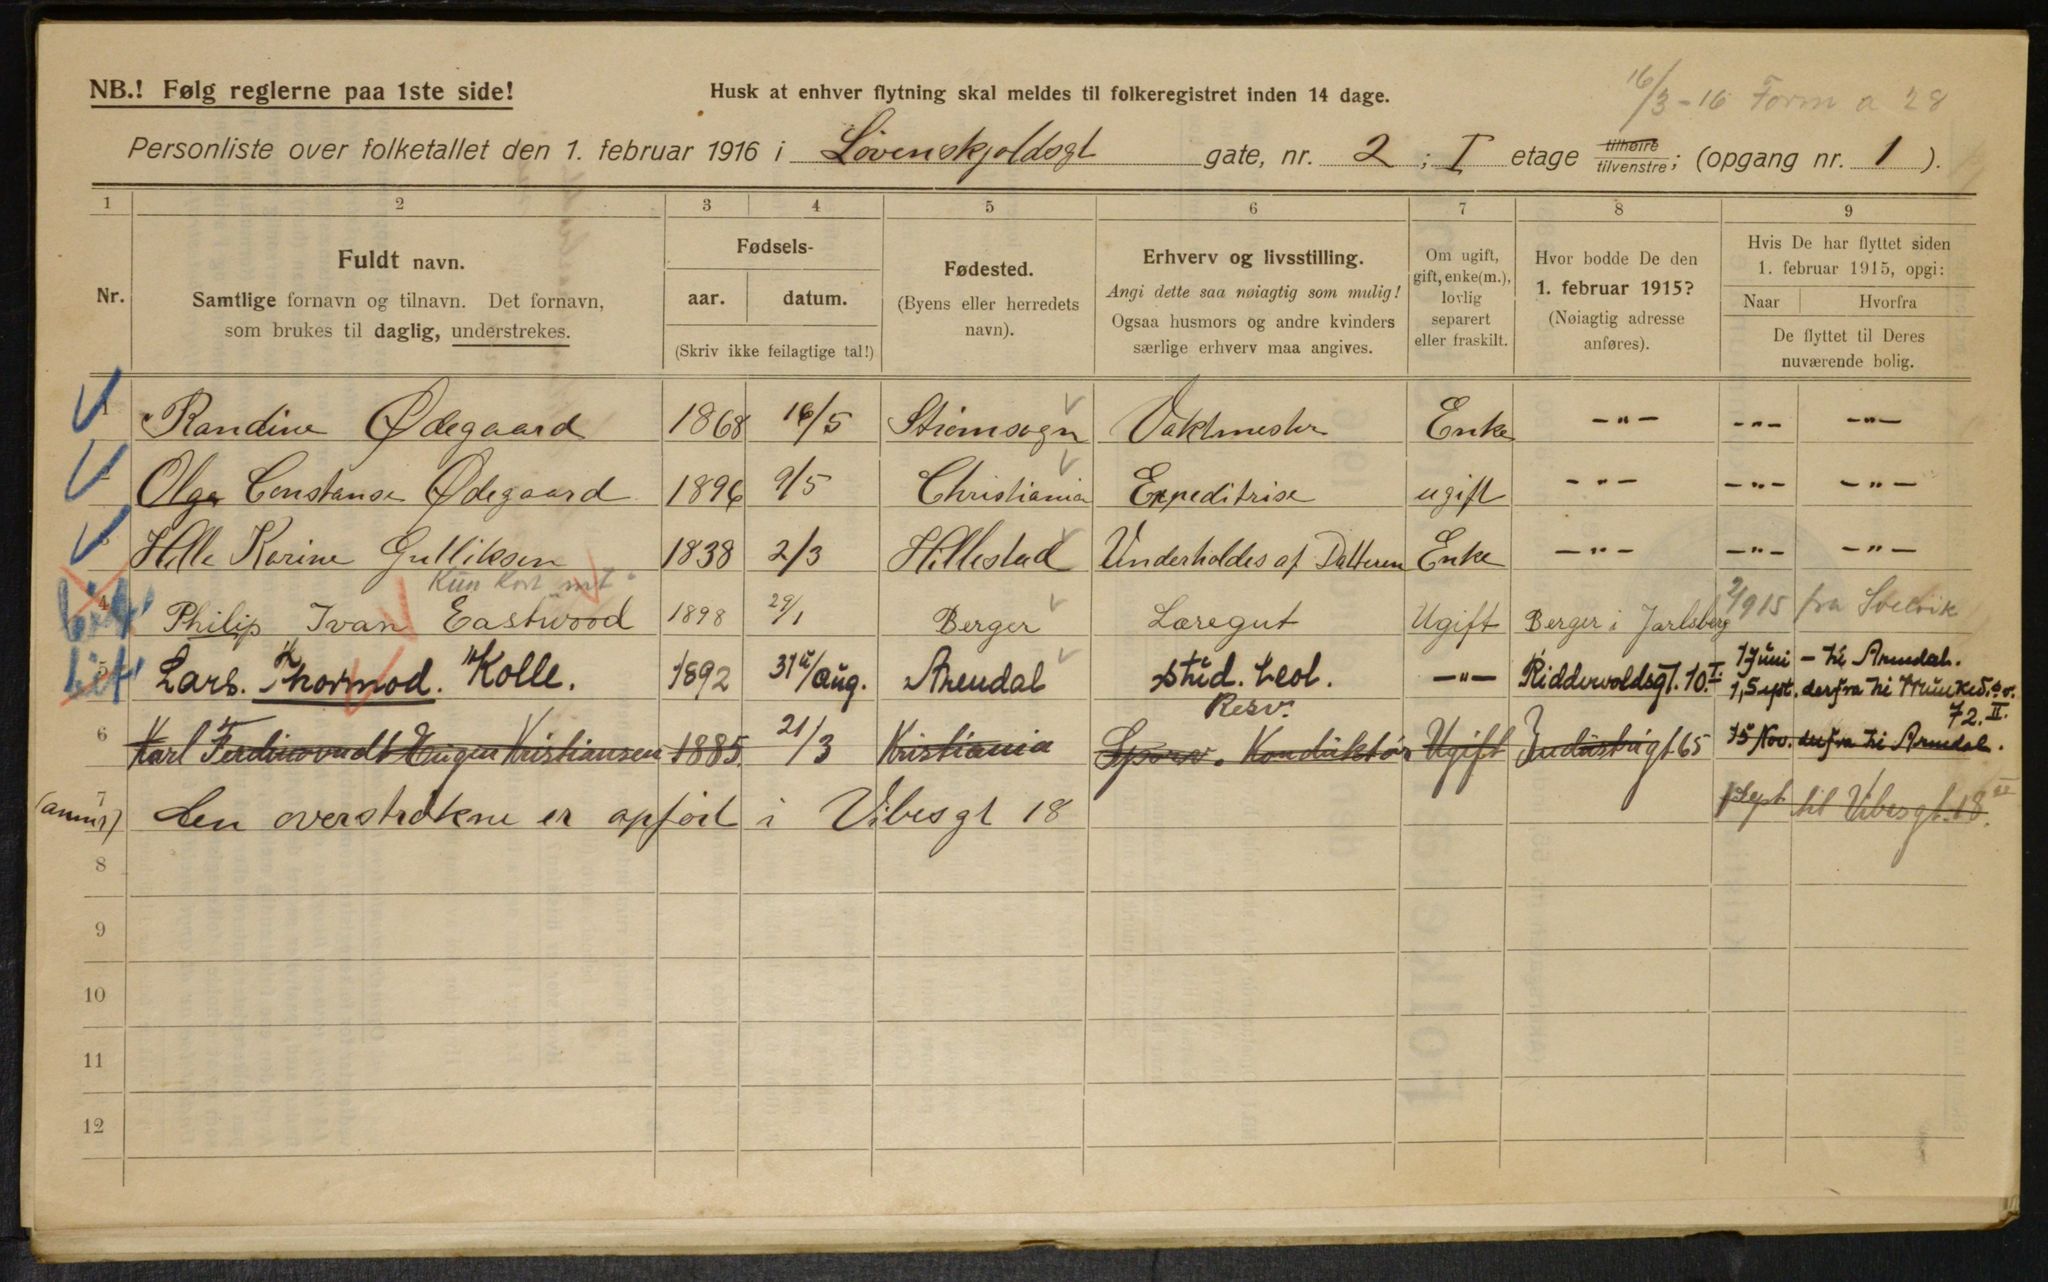 NB.! Følg reglerne paa 1ste side!
Husk at enhver flytning skal meldes til folkeregistret inden 14 dage.
16/3-16 Form a 28
Personliste over folketallet den 1. februar 1916 i Løvenskjoldsgt gate, nr. 2 ; I etage tilhøire tilvenstre; (opgang nr. 1 ).
1 2 3 4 5 6 7 8 9
Nr.
Fuldt navn.
Samtlige fornavn og tilnavn. Det fornavn,
som brukes til daglig, understrekes.
Fødsels-
aar. datum.
(Skriv ikke feilagtige tal!)
Fødested.
(Byens eller herredets
navn).
Erhverv og livsstilling.
Angi dette saa nøiagtig som mulig!
Ogsaa husmors og andre kvinders
særlige erhverv maa angives.
Om ugift,
gift, enke(m.),
lovlig
separert
eller fraskilt.
Hvor bodde De den
1. februar 1915?
(Nøiagtig adresse
anføres).
Hvis De har flyttet siden
1. februar 1915, opgi:
Naar Hvorfra
De flyttet til Deres
nuværende bolig.
1 Randine Ødegaard 1868 16/5 Strømsogn Vaktmester Enke -"- -"- -"-
2 Olga Constanse Ødegaard 1896 9/5 Christiania Expeditrise ugift -"- -"- -"-
3 Hille Karine Gulliksen 1838 2/3 Hillestad Underholdes af Datteren Enke -"- -"- -"-
Kun Kort
4 Philip Ivan Eastwood 1898 29/1 Berger Læregut Ugift Berger i Jarlsberg 2/9 15 fra Svelvik
5 Lars. Thormod. Kolle. 1892 31te/aug. Arendal stud. teol. -"- Riddervoldsgt. 10.I. 1 Juni - til Arendal.
1, Sept. derfra til
72. II.
Resv.
6 Karl Eugen Kristiansen 1885 21/3 Kristiania Sporv. Konduktør Ugift Industrigt. 65 15 Nov. derfra til Arendal.
7 den overstrøkne er opført i Vibesgt 18 1 Sept til Vibesgt. 18
8
9
10
11
12